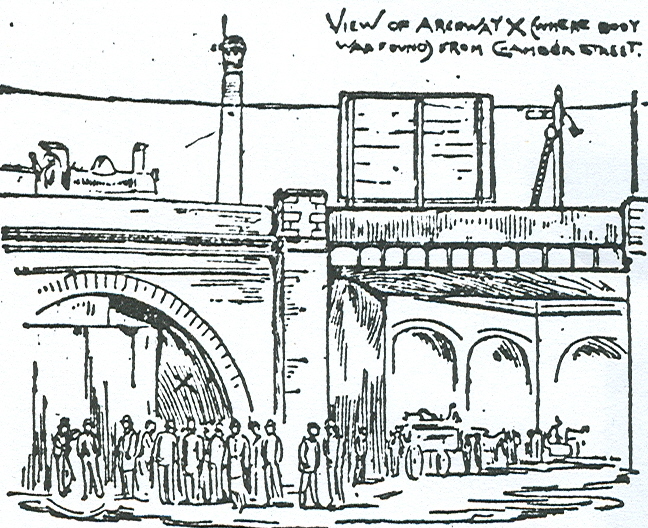 VIEW OF ARCHWAY X (WHERE BODY
WAS FOUND) FROM STREET.
X